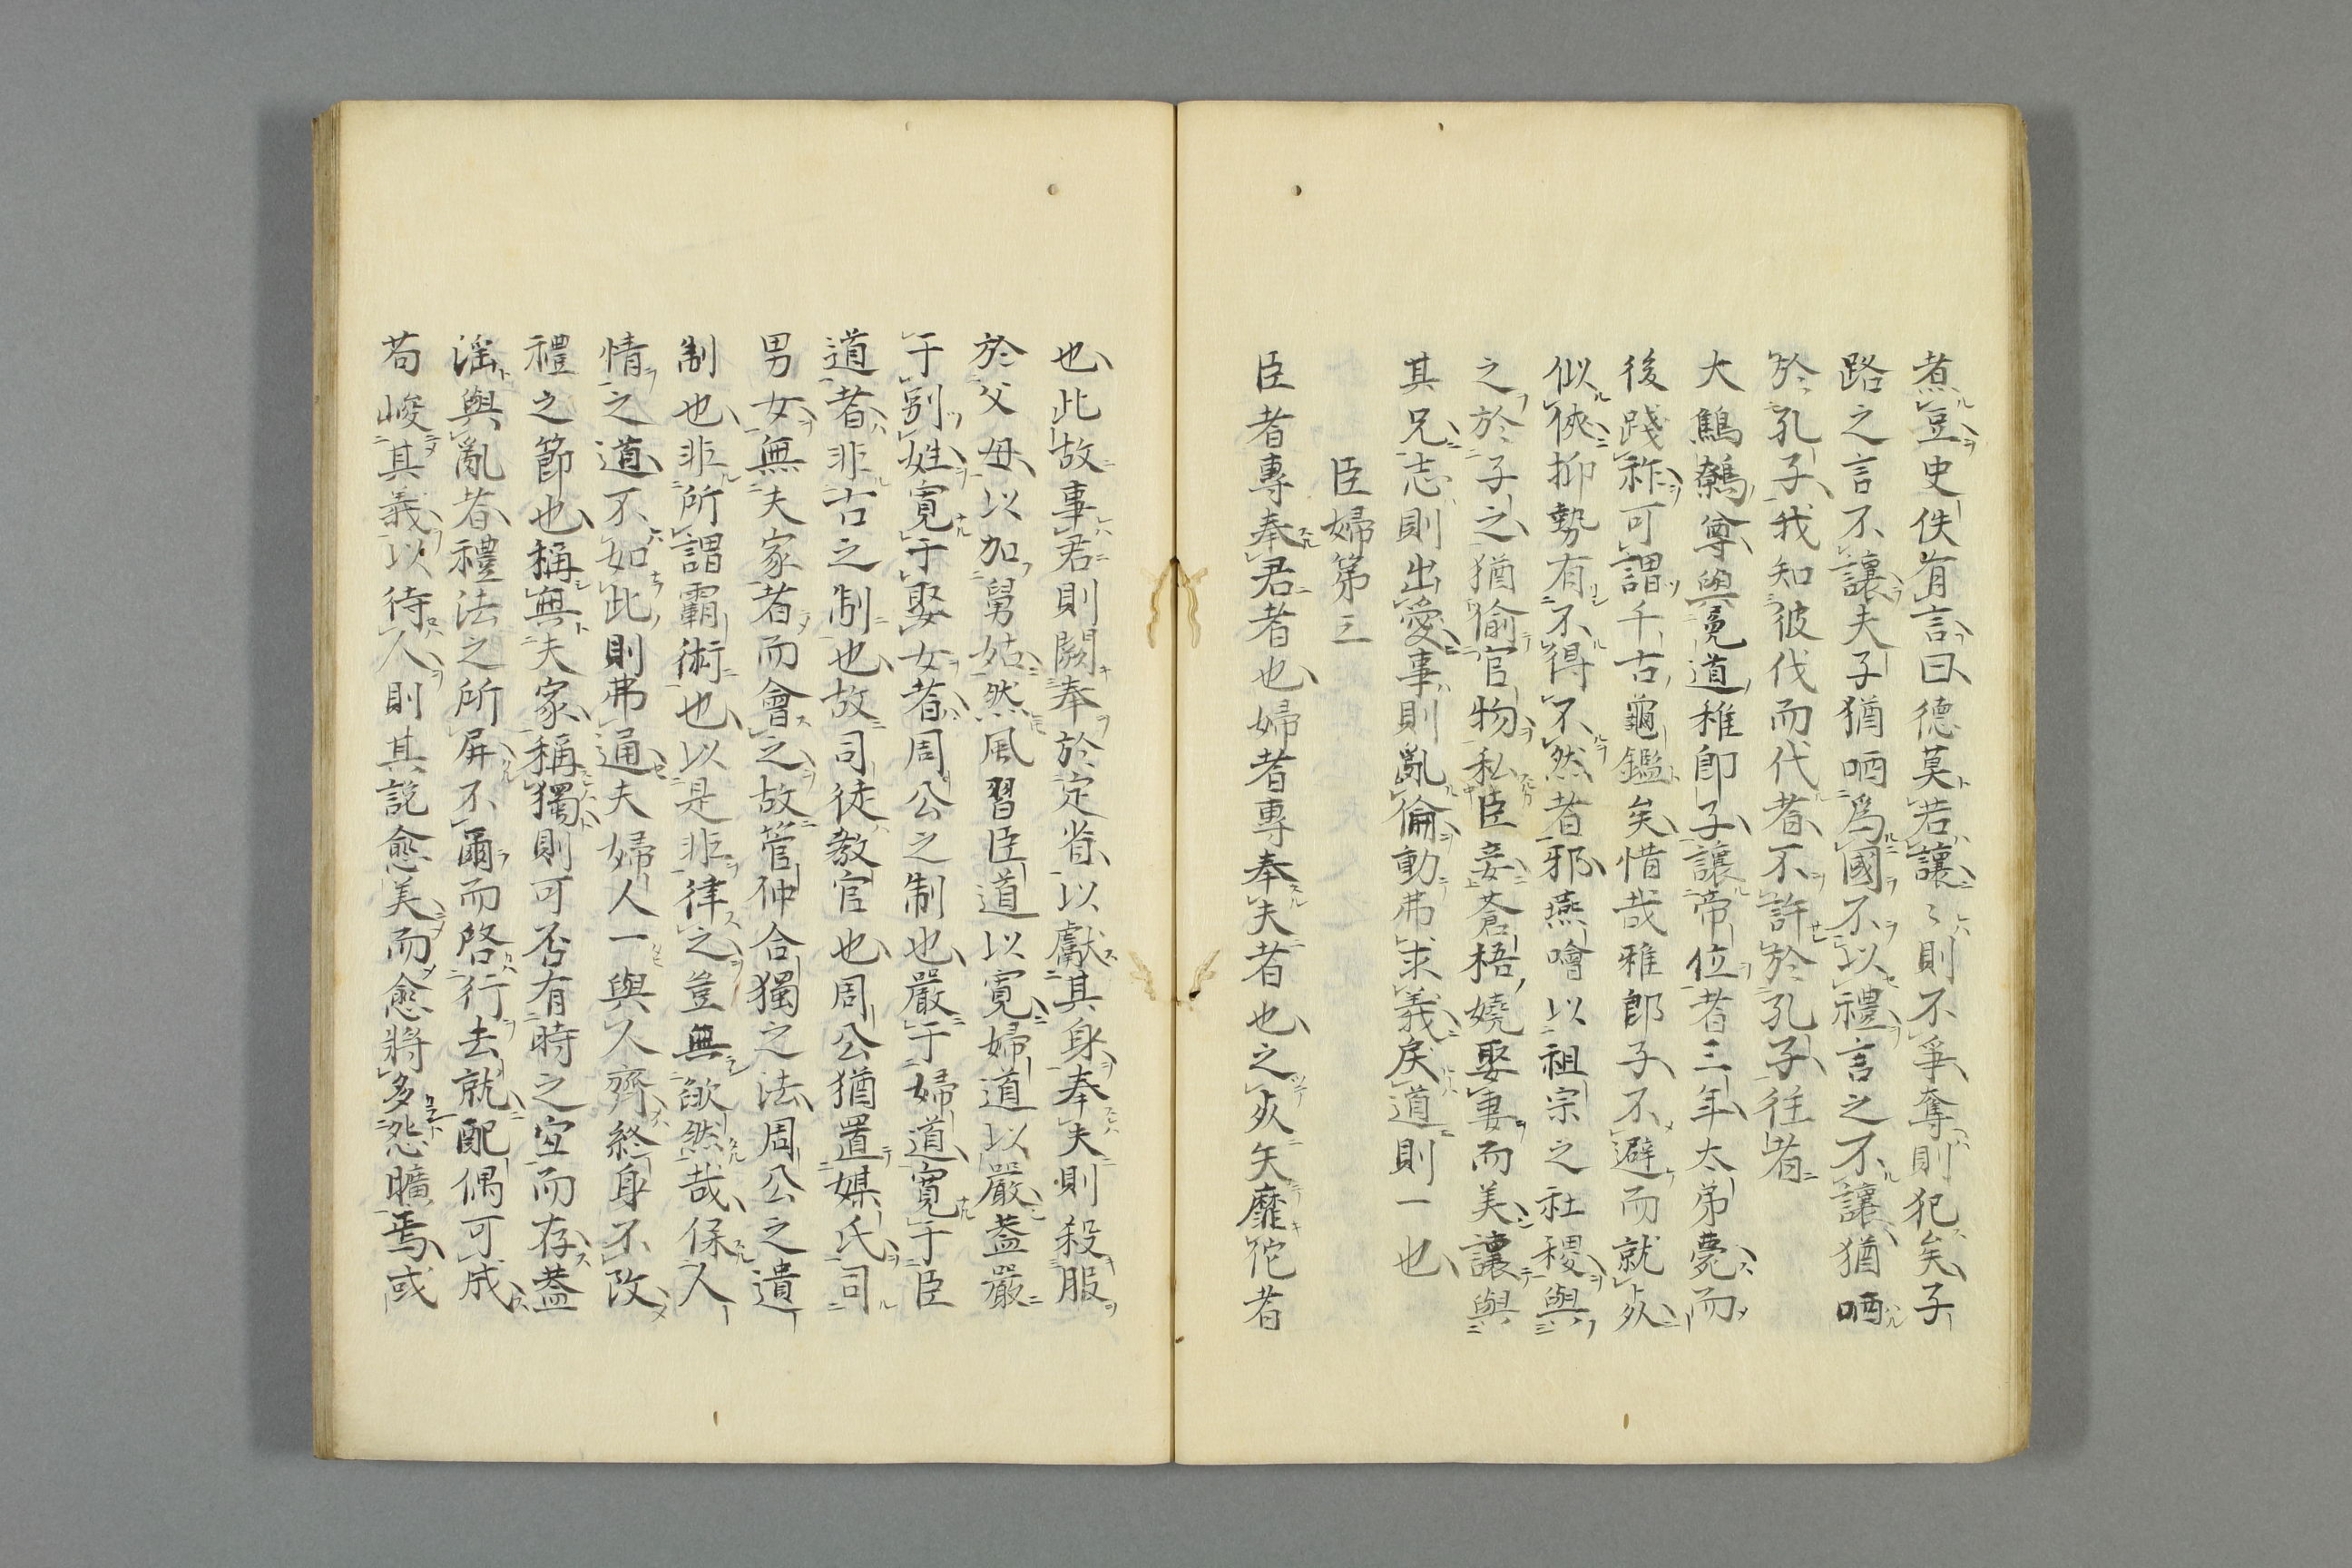 煮豆史佚有言曰德莫若讓〻則不爭奪則犯矣子
路之言不讓夫子猶哂爲國不以禮言之不讓猶哂
於孔子我知彼伐而代者不許於孔子往者
大鷦鷯尊與菟道稚郎子讓帝位者三年太弟薨而
後踐祚可謂千古龜鑑矣惜哉稚郎子不避而就死
似俠抑勢有不得不然者邪燕噲以祖宗之社稷與
之於子之猶偷官物私臣妾蒼梧嬈娶妻而美讓與
其兄志則出愛事則亂倫動弗求義戾道則一也
臣婦第三
臣者專奉君者也婦者專奉夫者也之死矢靡佗者
也此故事君則闕奉於定省以獻其身奉夫則殺服
於父母以加舅姑然風習臣道以寛婦道以嚴蓋嚴
于別姓寛于娶女者周公之制也嚴于婦道寛于臣
道者非古之制也故司徒教官也周公猶置媒氏司
男女無夫家者而會之故管仲合獨之法周公之遺
制也非所謂霸術也以是非律之豈無欿然哉保人
情之道不如此則弗通夫婦人一與人齊終身不改
禮之節也稱無夫家稱獨則可否有時之宜而存蓋
淫與亂者禮法之所屏不爾而啓行去就配偶可成
苟峻其義以待人則其說愈美而愈將多怨曠焉或